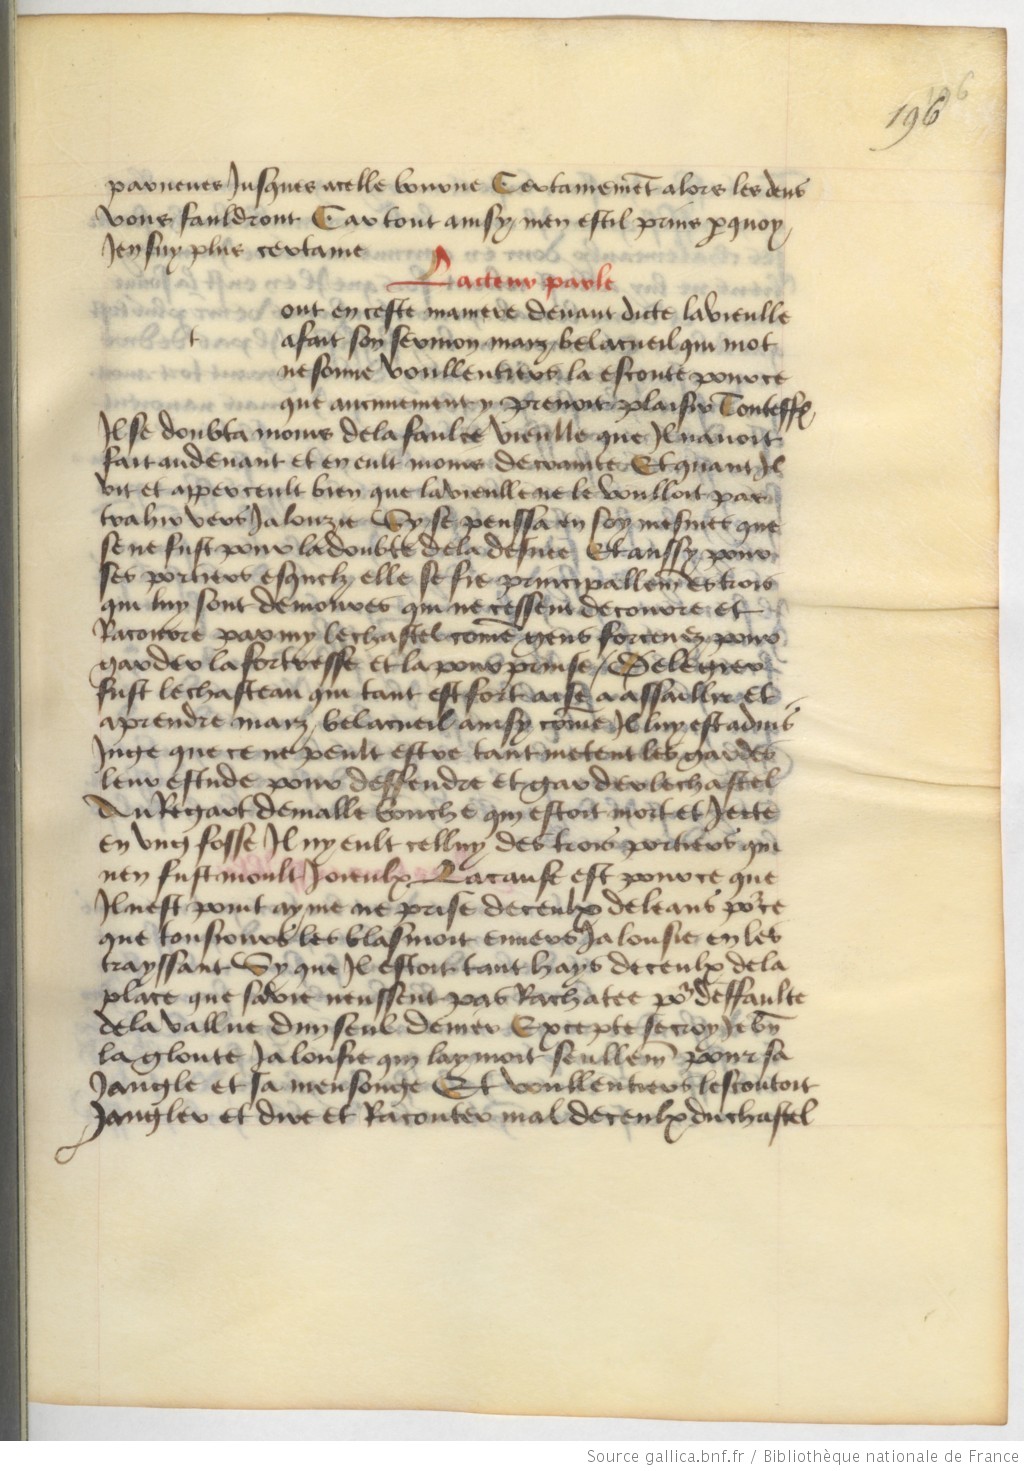 196
paruenes Jusques a celle bourne Certainemẽt alors les dens
vous fauldront Car tout ainsy men est il prins p̱quoy
Jen suy plus certaine
Lacteur parle
t
out en ceste maniere deuant dicte la vieulle
a fait son sermon maiz belacueil qui mot
ne sonne voullentiers la escoute pour ce
que aucunement y prenoit plaisir Touteff̃
Il se doubta moins de la faulce vieulle que Il nauoit
fait au deuant et en eult moins de crainte Et quant Il
vit et apperceult bien que la vieulle ne le voulloit par
trahir vers Jalouzie Sy se penssa en soy mesmes que
se ne fust pour la doubte de la
Et aussy pour
ses portiers esquelz elle se fie principallem̃ es trois
qui luy sont demoures qui ne cessent de courre et
Racourre parmy le chastel com̃e gens forcenez pour
garder la fortresse et la pourprinse / De legier
fust le chasteau qui tant est fort aise a assaillir et
a prendre maiz belacueil ainsy com̃e Il luy est aduis
Juge que ce ne peult estre tant metent les gardes
leur estude pour deffendre et garder le chastel
Au Regart de malle bouche qui estoit mort et Jette
en vng fosse Il ny eult celluy des trois portiers qui
nen fust moult Joieulx La cause est pour ce que
Il nest point ayme ne prise de ceulx de leans po͛ce
que tousiours les blasmoit enuers Jalousie en les
trayssant Sy que Il estoit tant hays de ceulx de la
place que sa vie neussent pas Rachatee po͛ deffaulte
de la vallue dun seul denier Excepte se croy Je bñ
la gloute Jalousie qui laymoit seullem̃ pour sa
Jangle et sa mensonge Et voullentiers lescoutoit
Jangler et dire et Raconter mal de ceulx du chastel
Source gallica.bnf.fr / Bibliothèque nationale de France